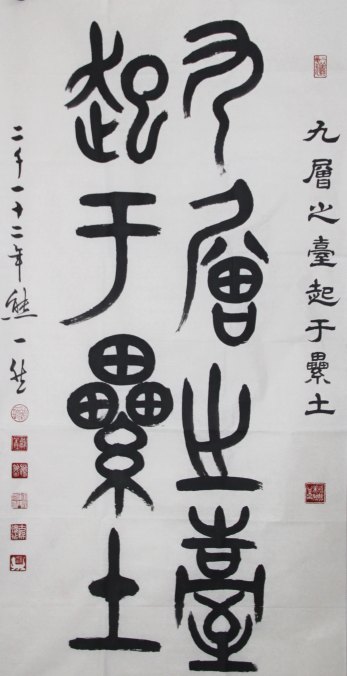 九層之臺起于累土
九層之臺
起于累土
二千一十二年熊一然